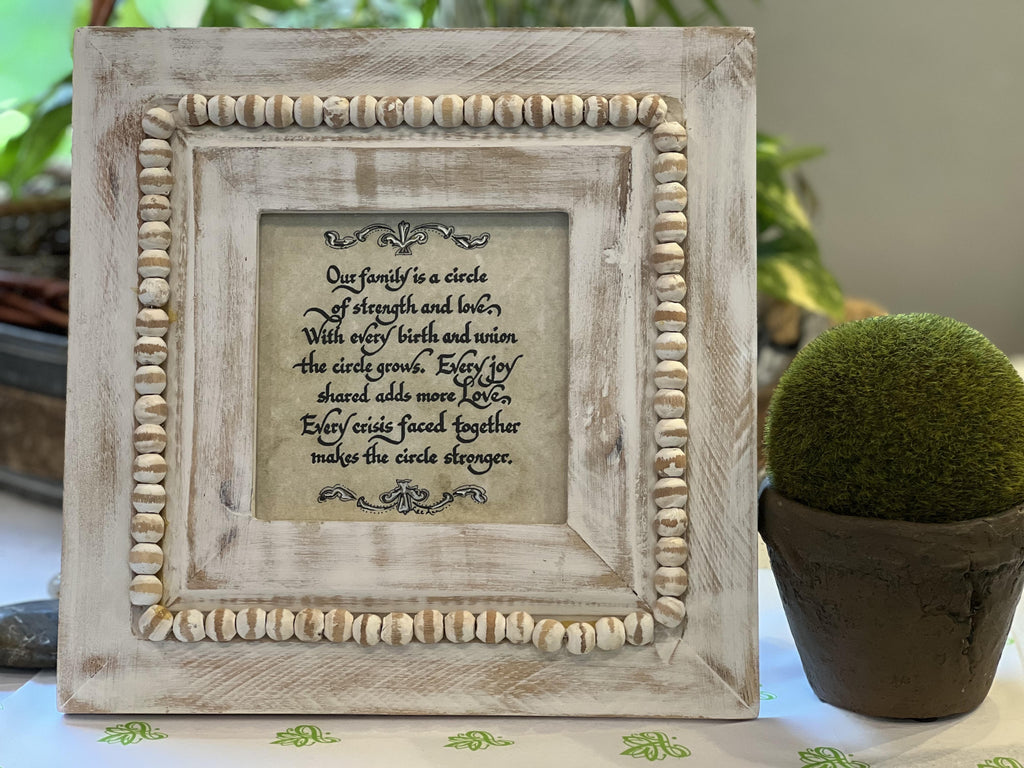 Our family is a circle
of strength and love.
With every birth and union
the circle grows. Every joy
shared adds more Love.
Every crisis faced together
makes the circle stronger.